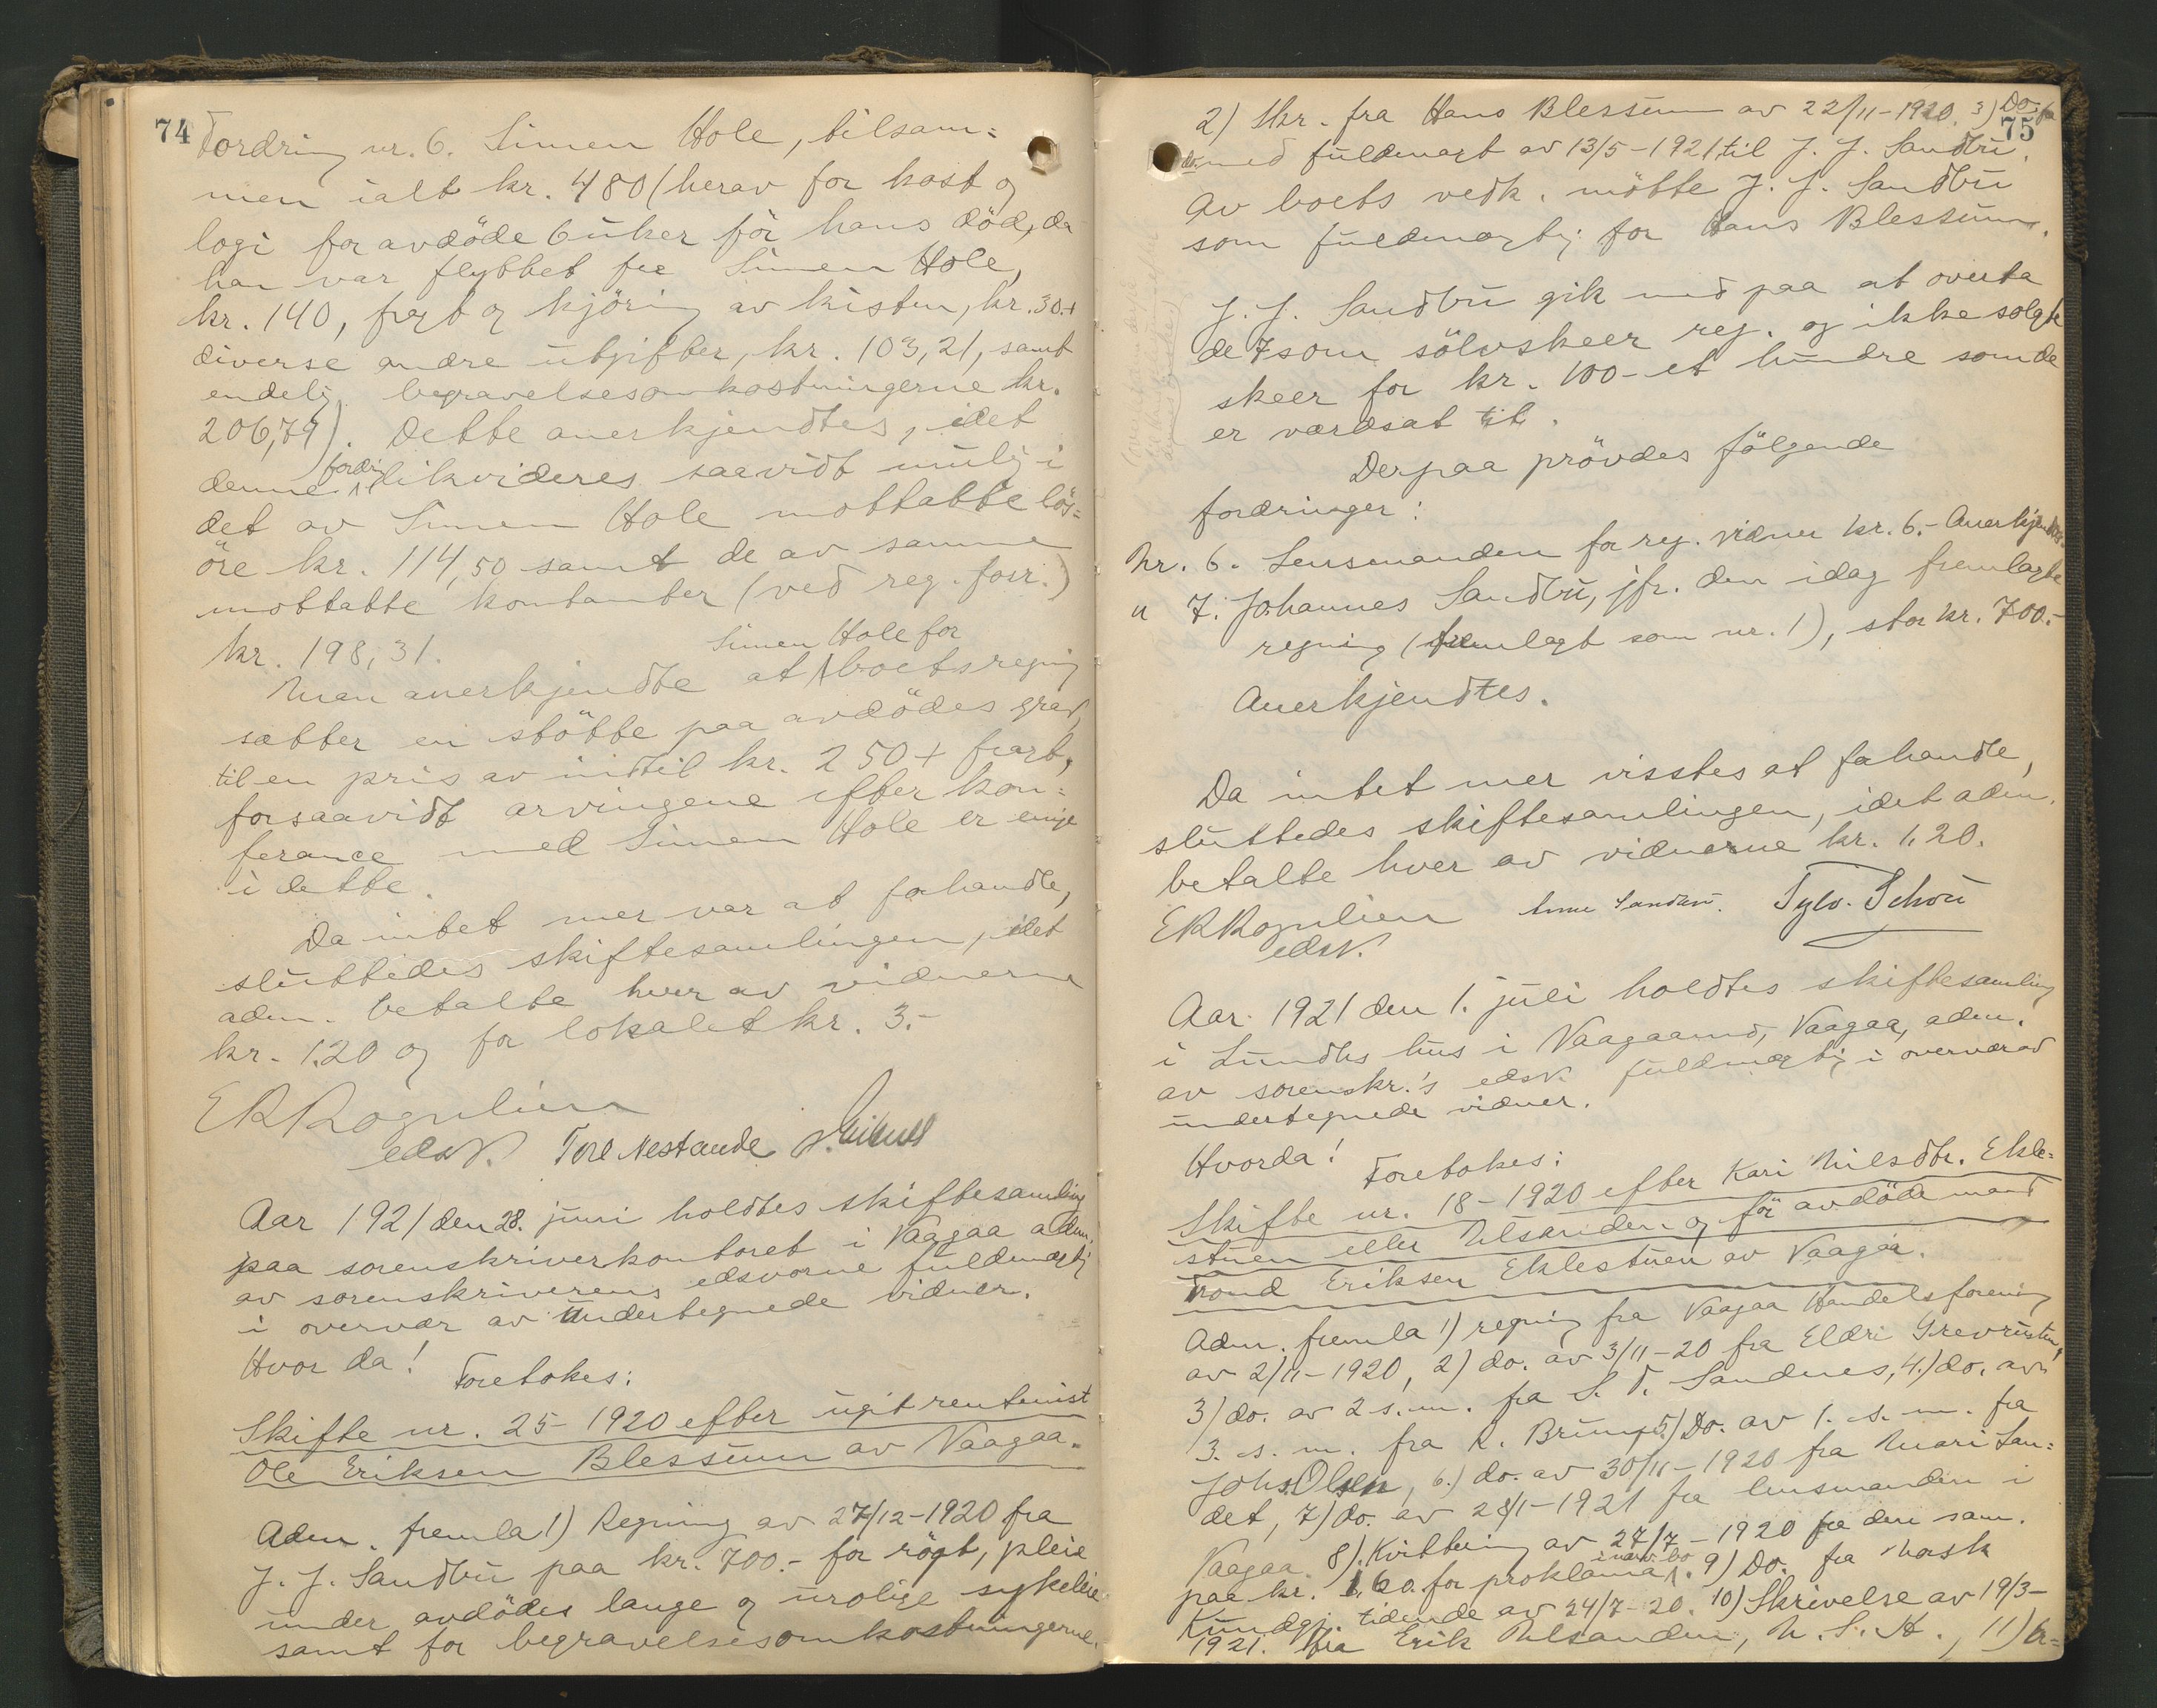 74
Fordring nr. 6. Simen Hole, tilsam=
men ialt kr. 480 (herav for kost og
logi for avdöde 6 uker för hans död, da
han var flyttet fra Simen Hole,
kr. 140, fragt og kjöring av kisten, kr. 30.+
diverse andre utgifter, kr. 103,21, samt
endelig begravelsesomkostningerne kr.
206,79). Dette anerkjendtes, idet
denne fordring likvideres saavidt mulig i
det av Simen Hole mottatte lös=
öre kr. 114,50 samt de av samme
mottatte kontanter (ved reg. forr.)
kr. 198,31.
Man anerkjendte at Simen Hole for boets regning
sætter en stötte paa avdödes grav,
til en pris av indtil kr. 250 + fragt,
forsaavidt arvingene efter kon=
ferance med Simen Hole er enige
i dette.
Da intet mer var at forhandle,
sluttedes skiftesamlingen, idet
adm. betalte hver av vidnerne
kr. 1.20 og for lokalet kr. 3.-
E K Rognlien
edsv. Tore Nestande
Aar 1921 den 28. juni holdtes skiftesamling
paa sorenskriverkontoret i Vaagaa adm.
av sorenskriverens edsvorne fuldmægtig
i overvær av undertegnede vidner.
Hvor da!
Foretokes:
Skifte nr. 25-1920 efter ugift rentenist
Ole Eriksen Blessum av Vaagaa.
Adm. fremla 1) Regning av 27/12-1920 fra
J. J. Sandbu paa kr. 700.- for rögt, pleie
under avdödes lange og urolige sykeleie
samt for begravelsesomkostningerne.
75
2) Skr. fra Hans Blessum av 22/11-1920. 3) Do. fra
do. med fuldmagt av 13/5-1921 til J. J. Sandbu.
Av boets vedk. mötte J. J. Sandbu
som fuldmægtig for Hans Blessum.
J. J. Sandbu gik med paa at overta
de 7 som sölvskeer reg. og ikke solgte
skeer for kr. 100- et hundre som de
er værdsat til.
Derpaa prövdes följende
fordringer:
Nr. 6. Lensmanden for reg. vidner kr. 6.- Anerkjendtes.
" 7. Johannes Sandbu, jfr. den idag fremlagte
regning (fremlagt som nr. 1), stor kr. 700.-
Anerkjendtes.
Da intet mer visstes at forhandle,
sluttedes skiftesamlingen, idet adm.
betalte hver av vidnerne kr. 1.20.
E K Rognlien Anne Sandbu. Sylv. Schou
edsv.
Aar 1921 den 1. juli holdtes skiftesamling
i Lundbs hus i Vaagaamo, Vaagaa, adm.
av sorenskr.'s edsv. fuldmægtig i overvær av
undertegnede vidner.
Hvorda!
Foretokes:
Skifte nr. 18-1920 efter Kari Nilsdtr. Ekle=
stuen eller Ulsanden og för avdöde mand
Trond Eriksen Eklestuen av Vaagaa.
Adm. fremla 1) regning fra Vaagaa Handelsforening
av 2/11-1920, 2) do. av 3/11-20 fra Eldri Grevrusten,
3) do. av 2 s. m. fra S. T. Sandnes, 4.) do. av
3. s. m. fra K. Brun, 5) Do. av 1. s. m. fra
Johs. Olsen, 6.) do. av 30/11-1920 fra Mari Lan=
det, 7) do. av 28/1-1921 fra lensmanden i
Vaagaa. 8). Kvittering av 27/7-1920 fra den sam.
paa kr. 1,60. for proklama i nærv. bo. 9) Do. fra Norsk
Kundgj. tidende av 24/7-20. 10) Skrivelse av 19/3-
1921. fra Erik Ulsanden, N. S. A., 11)